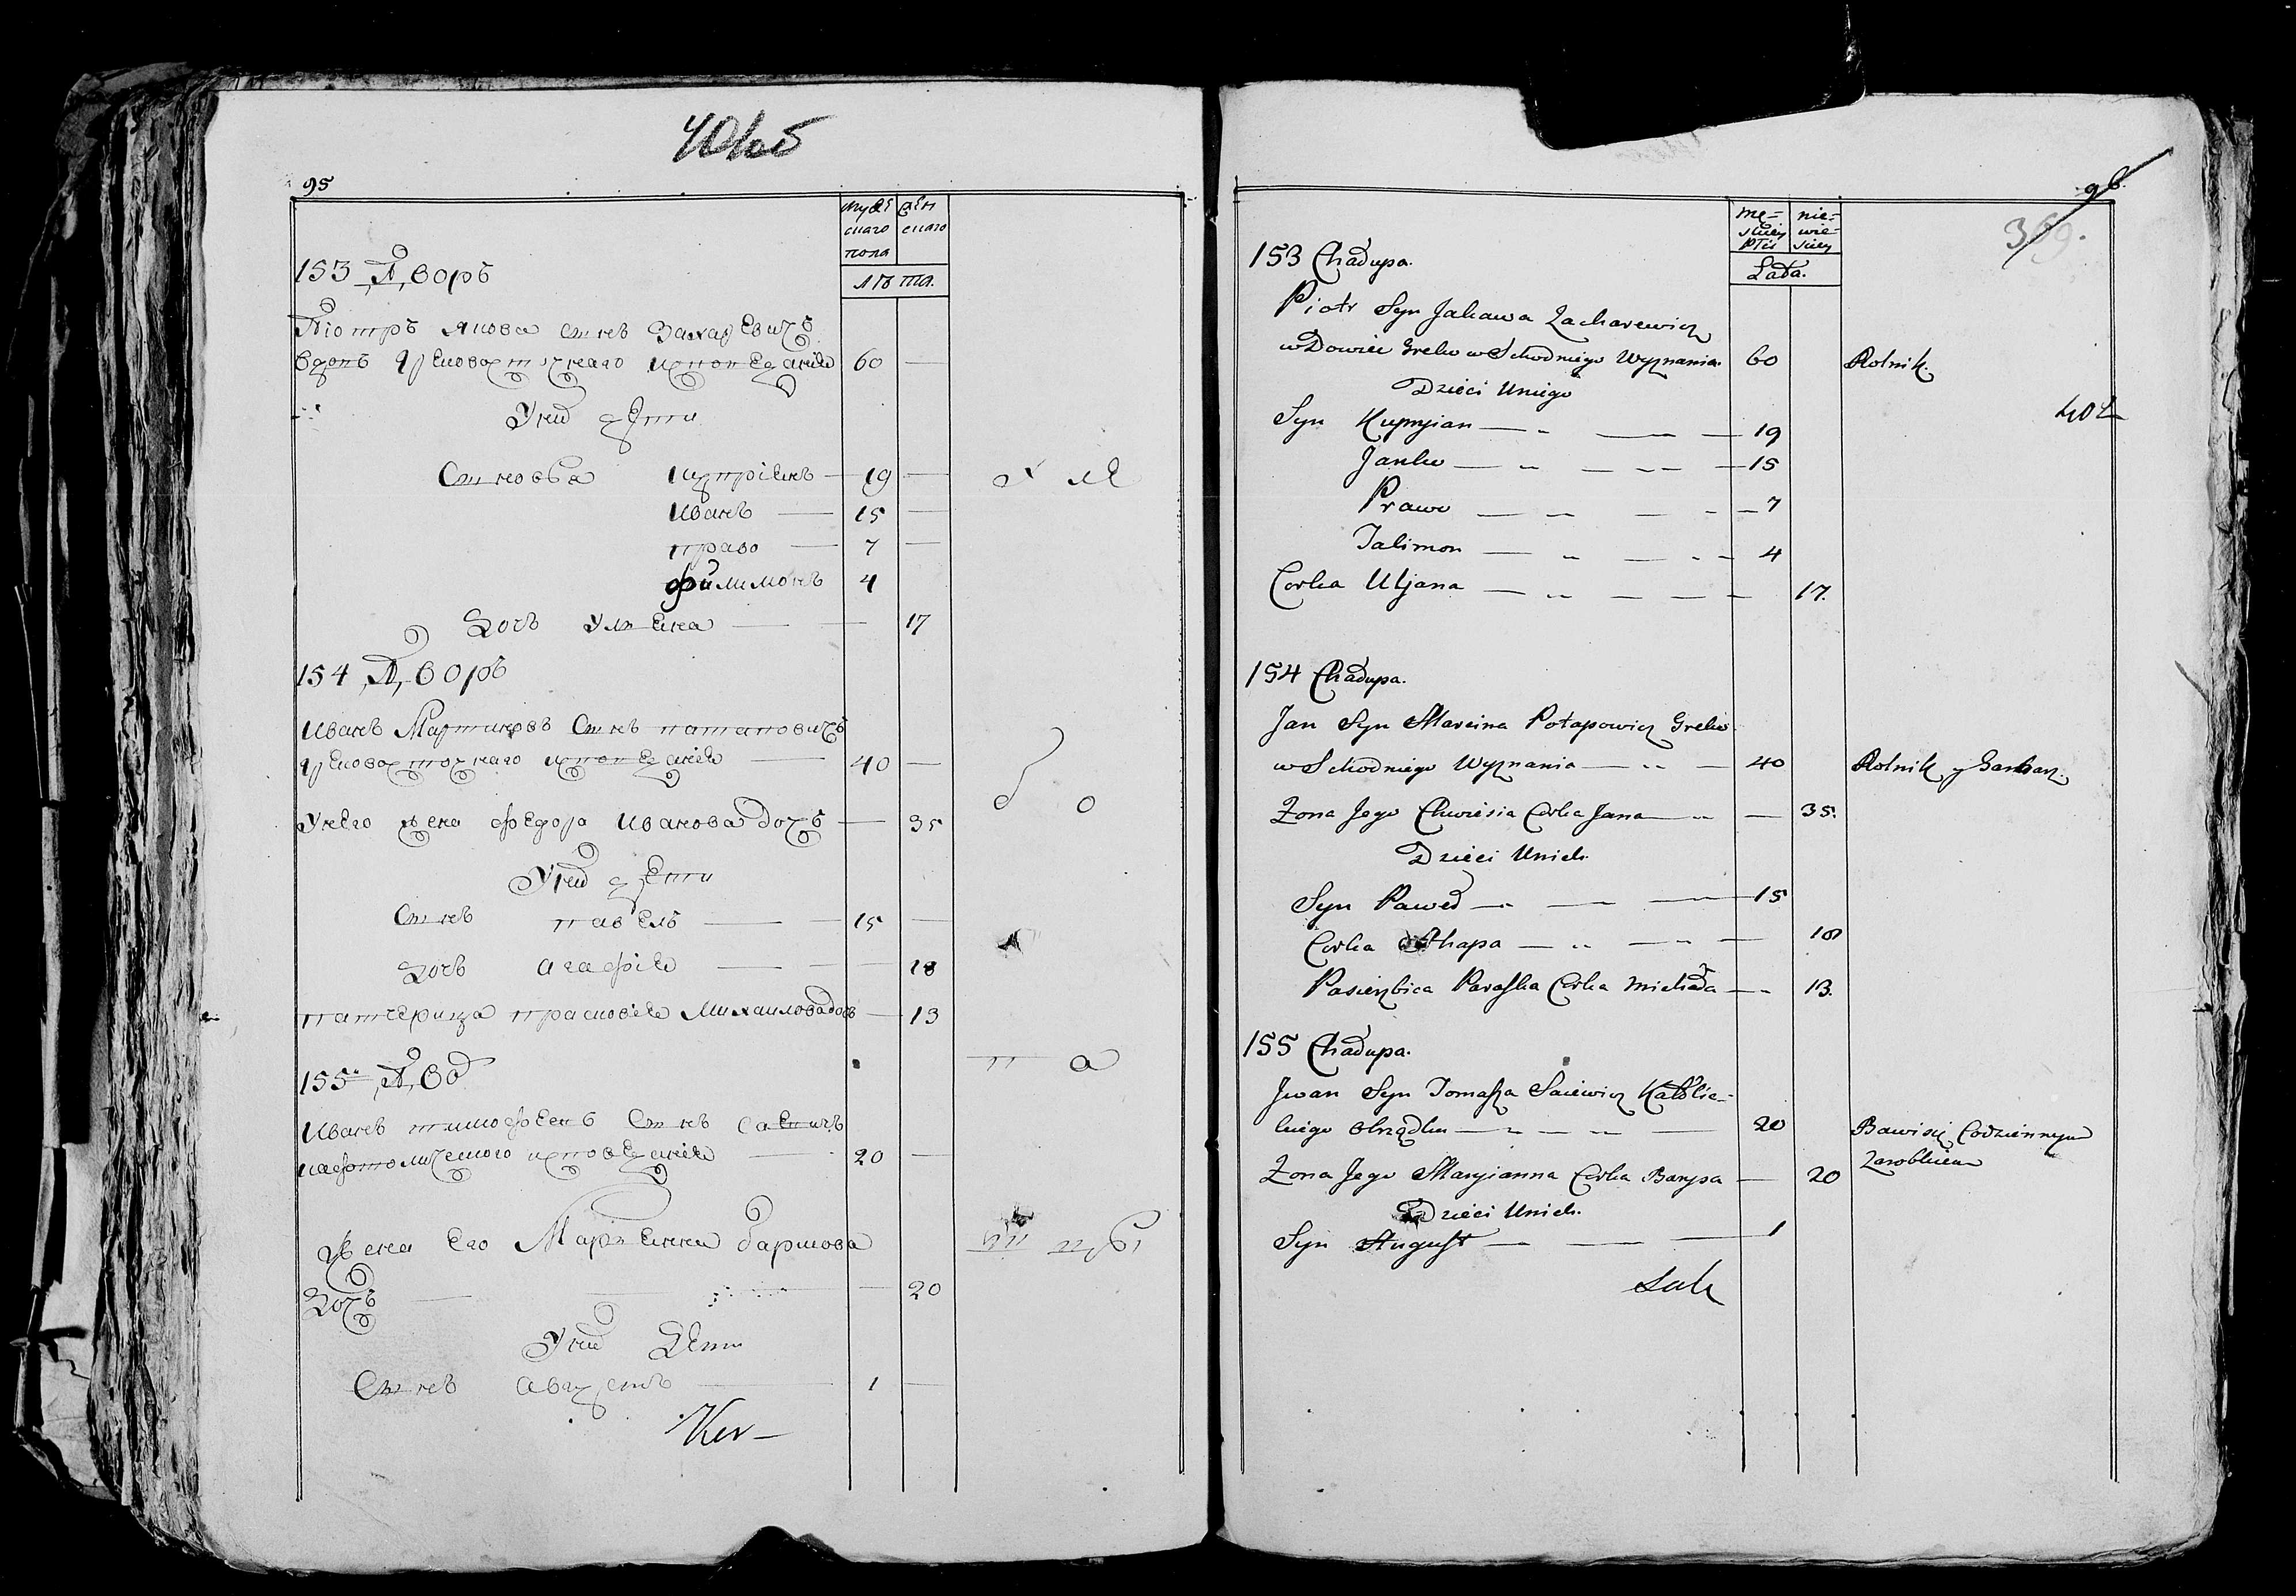 95
мужескаго пола
женскаго
лѣта.
153 Дворъ
Піотръ Якова сынъ Захаревичъ
вдовъ Грековосточнаго исповеданія 60
У нихъ дети
Сыновья Кипріянъ 19
Иванъ 15
право 7
Филимонъ 4
Дочь Ульяна 17
154 Дворъ
Иванъ Мартиновъ Сынъ патаповичъ
Грековосточнаго исповеданія 40
У него жена Федора Иванова дочъ 35
У нихъ дети
Сынъ павелъ 15
Дочь агафія 18
патчерица прасковія Михаилова дочь 13
155 Дво
Иванъ тимофеевъ Сынъ
кафтолическаго исповеданія 20
Жена Его Маріянна барисова
Дочъ 20
У нихъ Дети
Сынъ августъ 1
96.
mę-skiey płci
nie-wie-sciey
Lata.
153 Chałupa.
Piotr Syn Jakowa Zacharewicz
wDowiec Greko wSchodniego Wyznania. 60 Rolnik.
Dzieci Uniego
402
Syn Kupryian 19
Janko 15
Prawo 7
Talimon 4
Corka Uljana 17.
154 Chałupa.
Jan Syn Marcina Potapowicz Greko
wSchodniego Wyznania 40 Rolnik y Garbarz.
Zona Jego Chwiesia Corka Jana 35.
Dzieci Unich.
Syn Paweł 15
Corka Ahapa 18
Pasierzbica Paraska Corka Michała 13.
155 Chałupa.
Jwan Syn Tomasza Saiewicz Katolic-
kiego Obrządku 20 Bawi się Codziennym
Zarobkiem
Zona Jego Maryianna Corka Barysa 20
Dzieci Unich.
Syn August 1